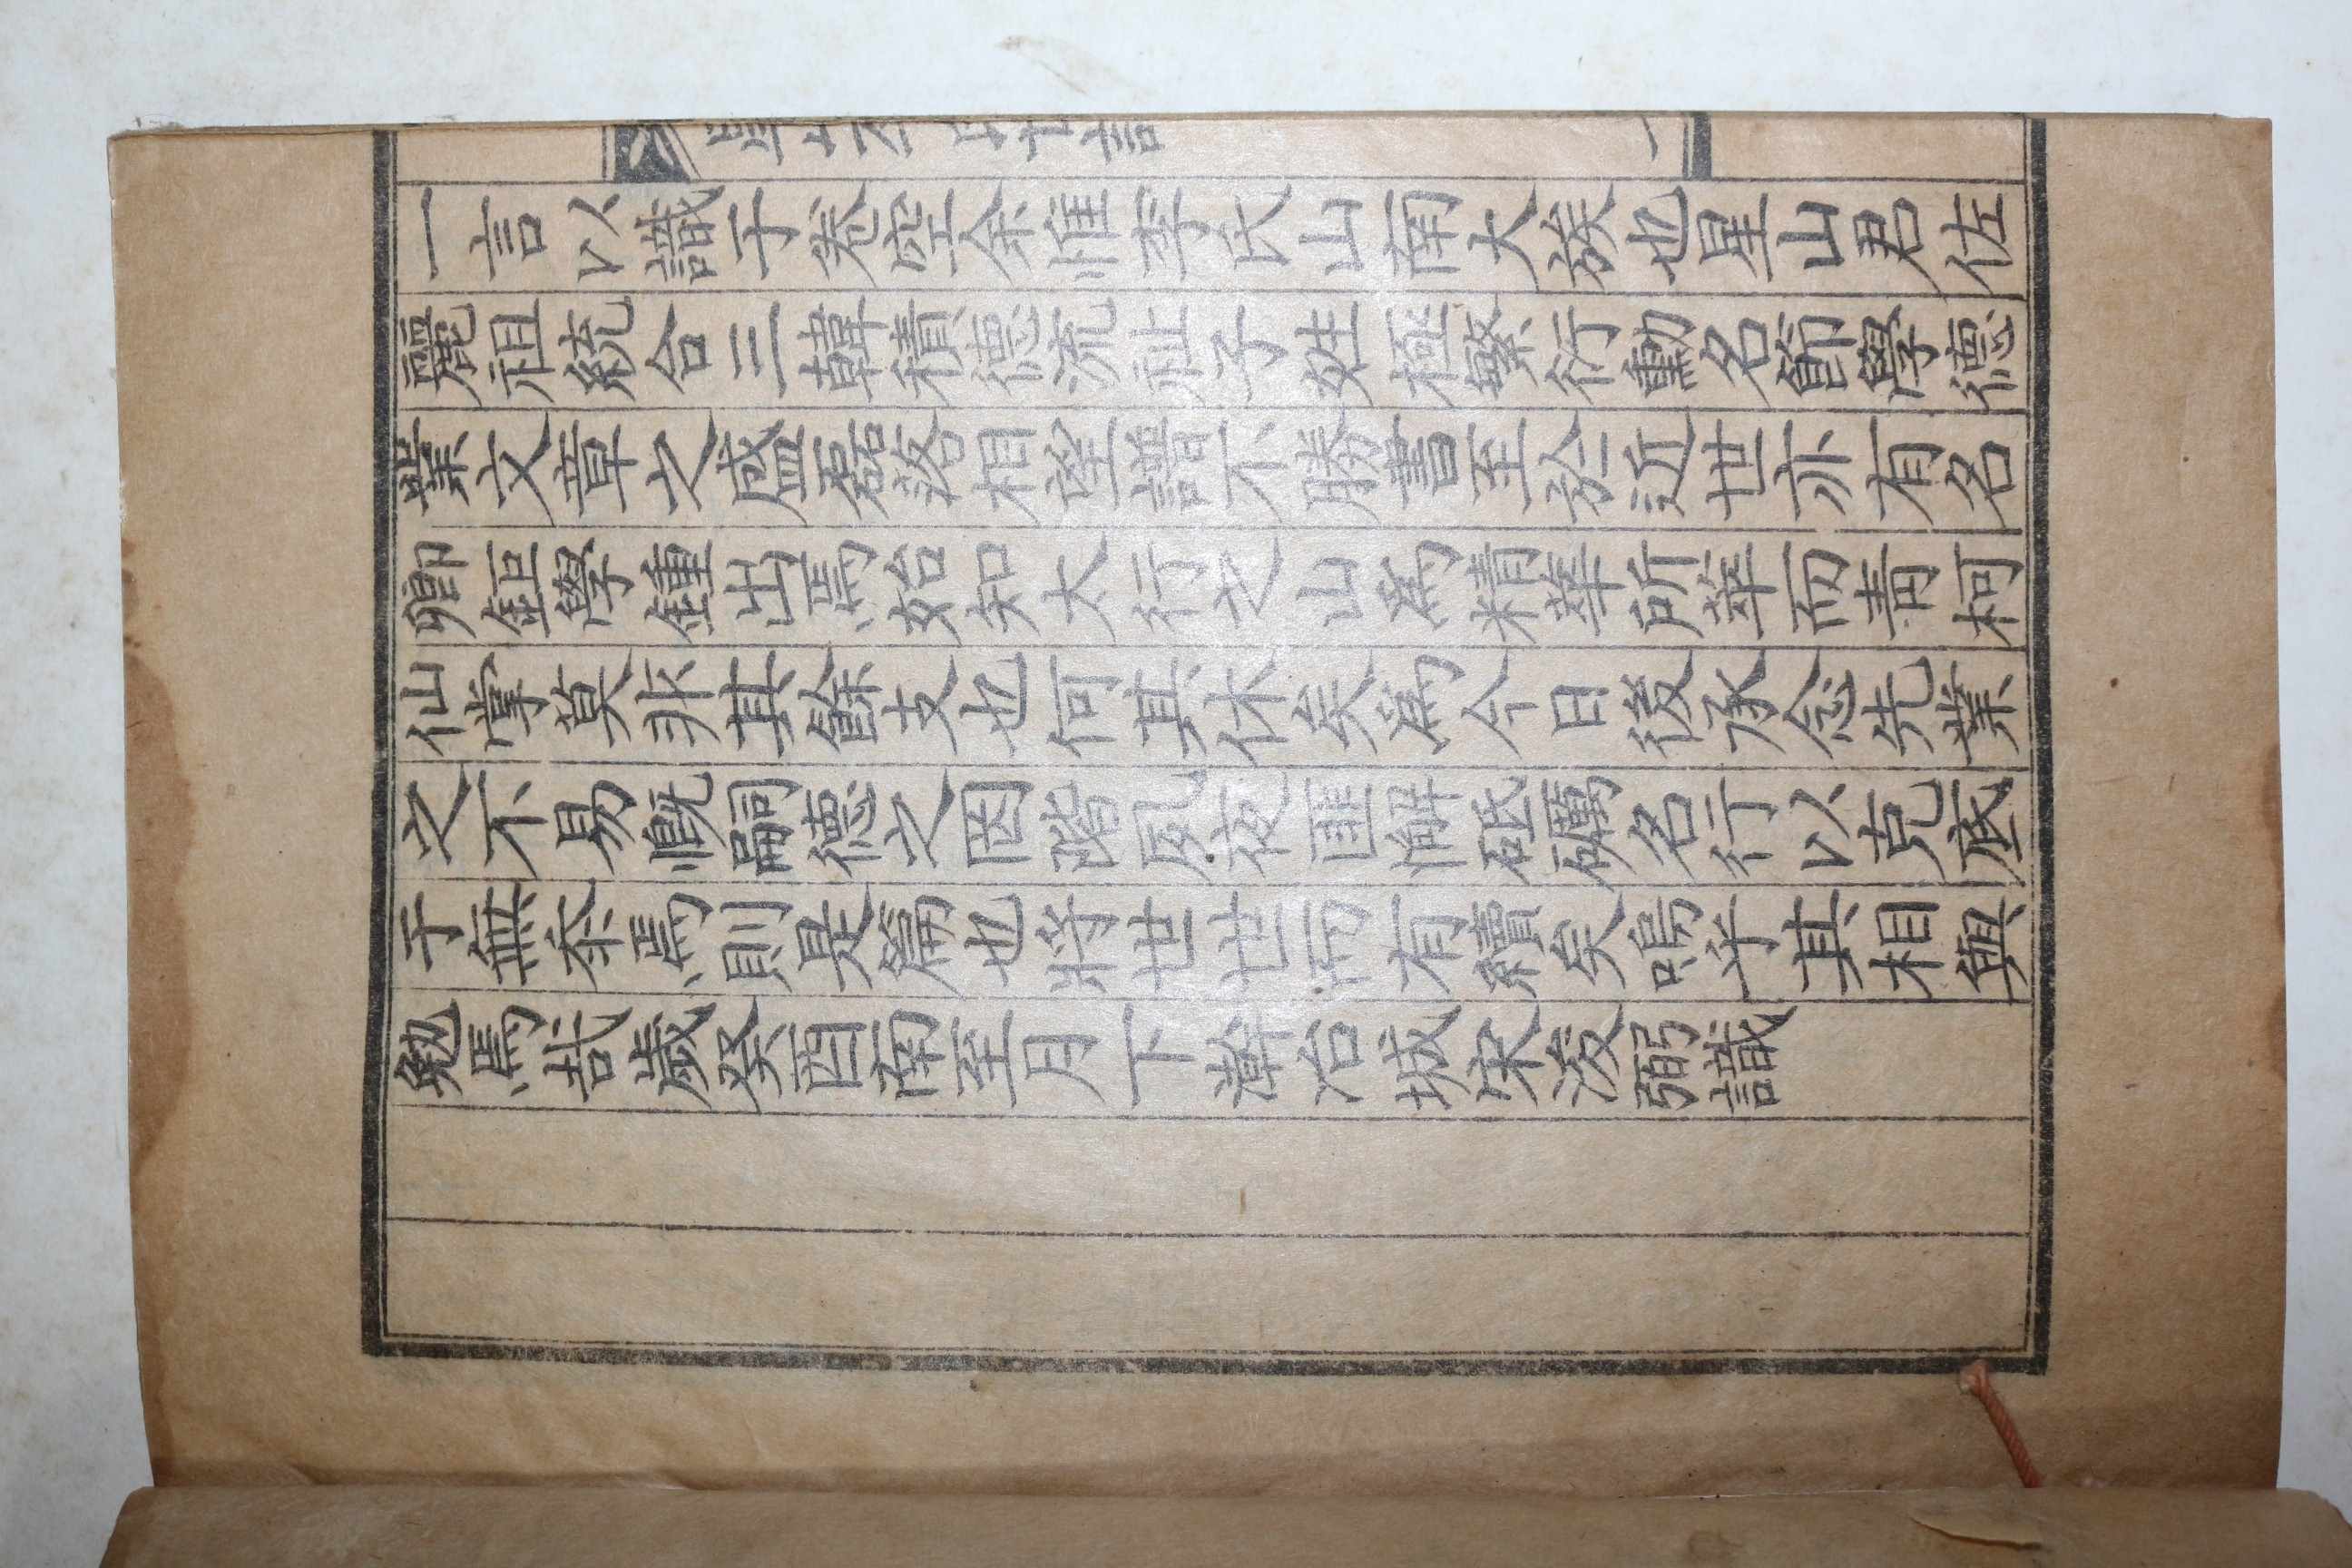 一言以識于卷空余惟李氏山南大族也星山君佐
麗祖統合三韓積德流祉子姓極繁衍勳名節學德
業文章之盛磊落相望譜不勝書至於近世亦有名
卿鉅學鍾出焉始知太行之山爲精華所萃而靑柯
仙掌莫非其餘支也何其休矣爲今日後承念先業
之不易慨嗣德之罔階夙夜匪懈砥礪名行以克底
于無忝焉則是篇也將世世而有續矣嗚乎其相與
勉焉哉歲癸酉南至月下澣冶城宋浚弼識